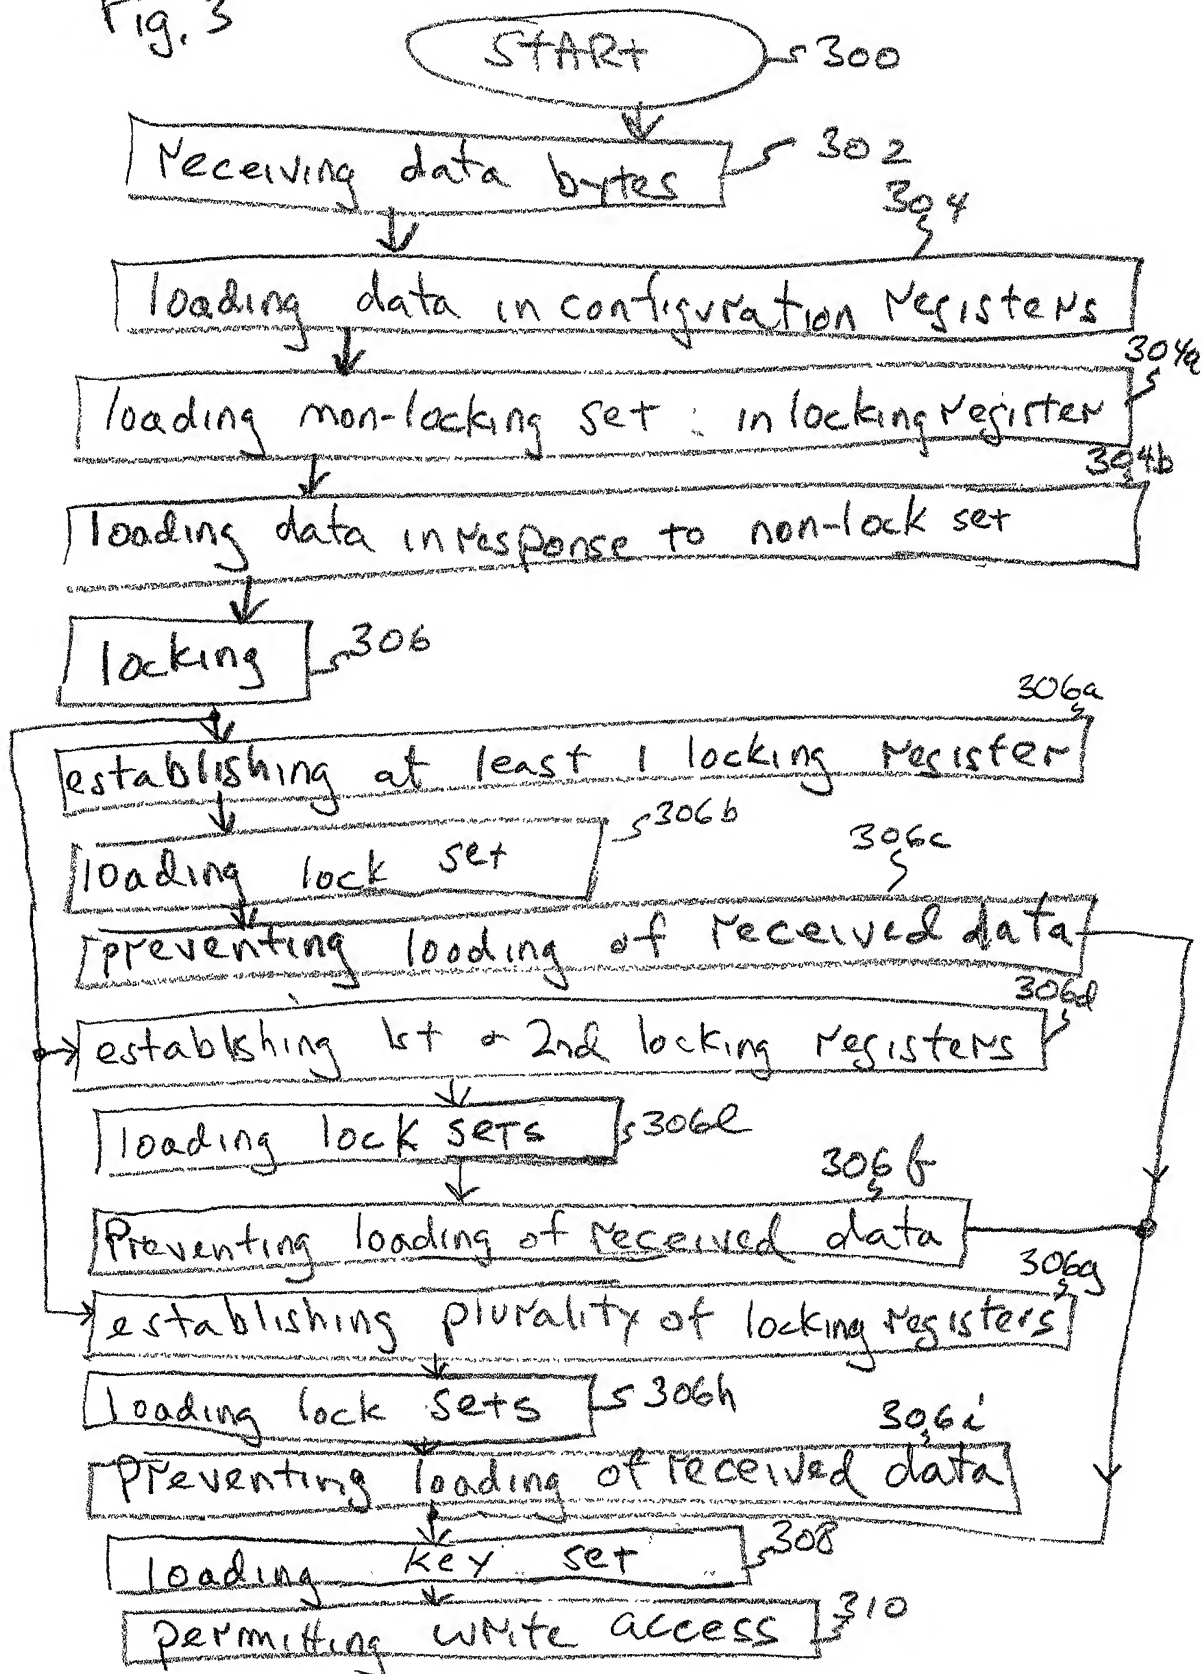 Fig. 3
START 300
receiving data bytes 302
304
loading data in configuration registers
304a
loading non-locking set : in locking register
304b
loading data in response to non-lock set
locking 306
306a
establishing at least 1 locking register
306b
loading lock set
306c
preventing loading of received data
306d
establishing 1st + 2nd locking registers
loading lock sets 306e
306f
Preventing loading of received data
306g
establishing plurality of locking registers
loading lock sets 306h
306i
preventing loading of received data
loading key set 308
permitting write access 310